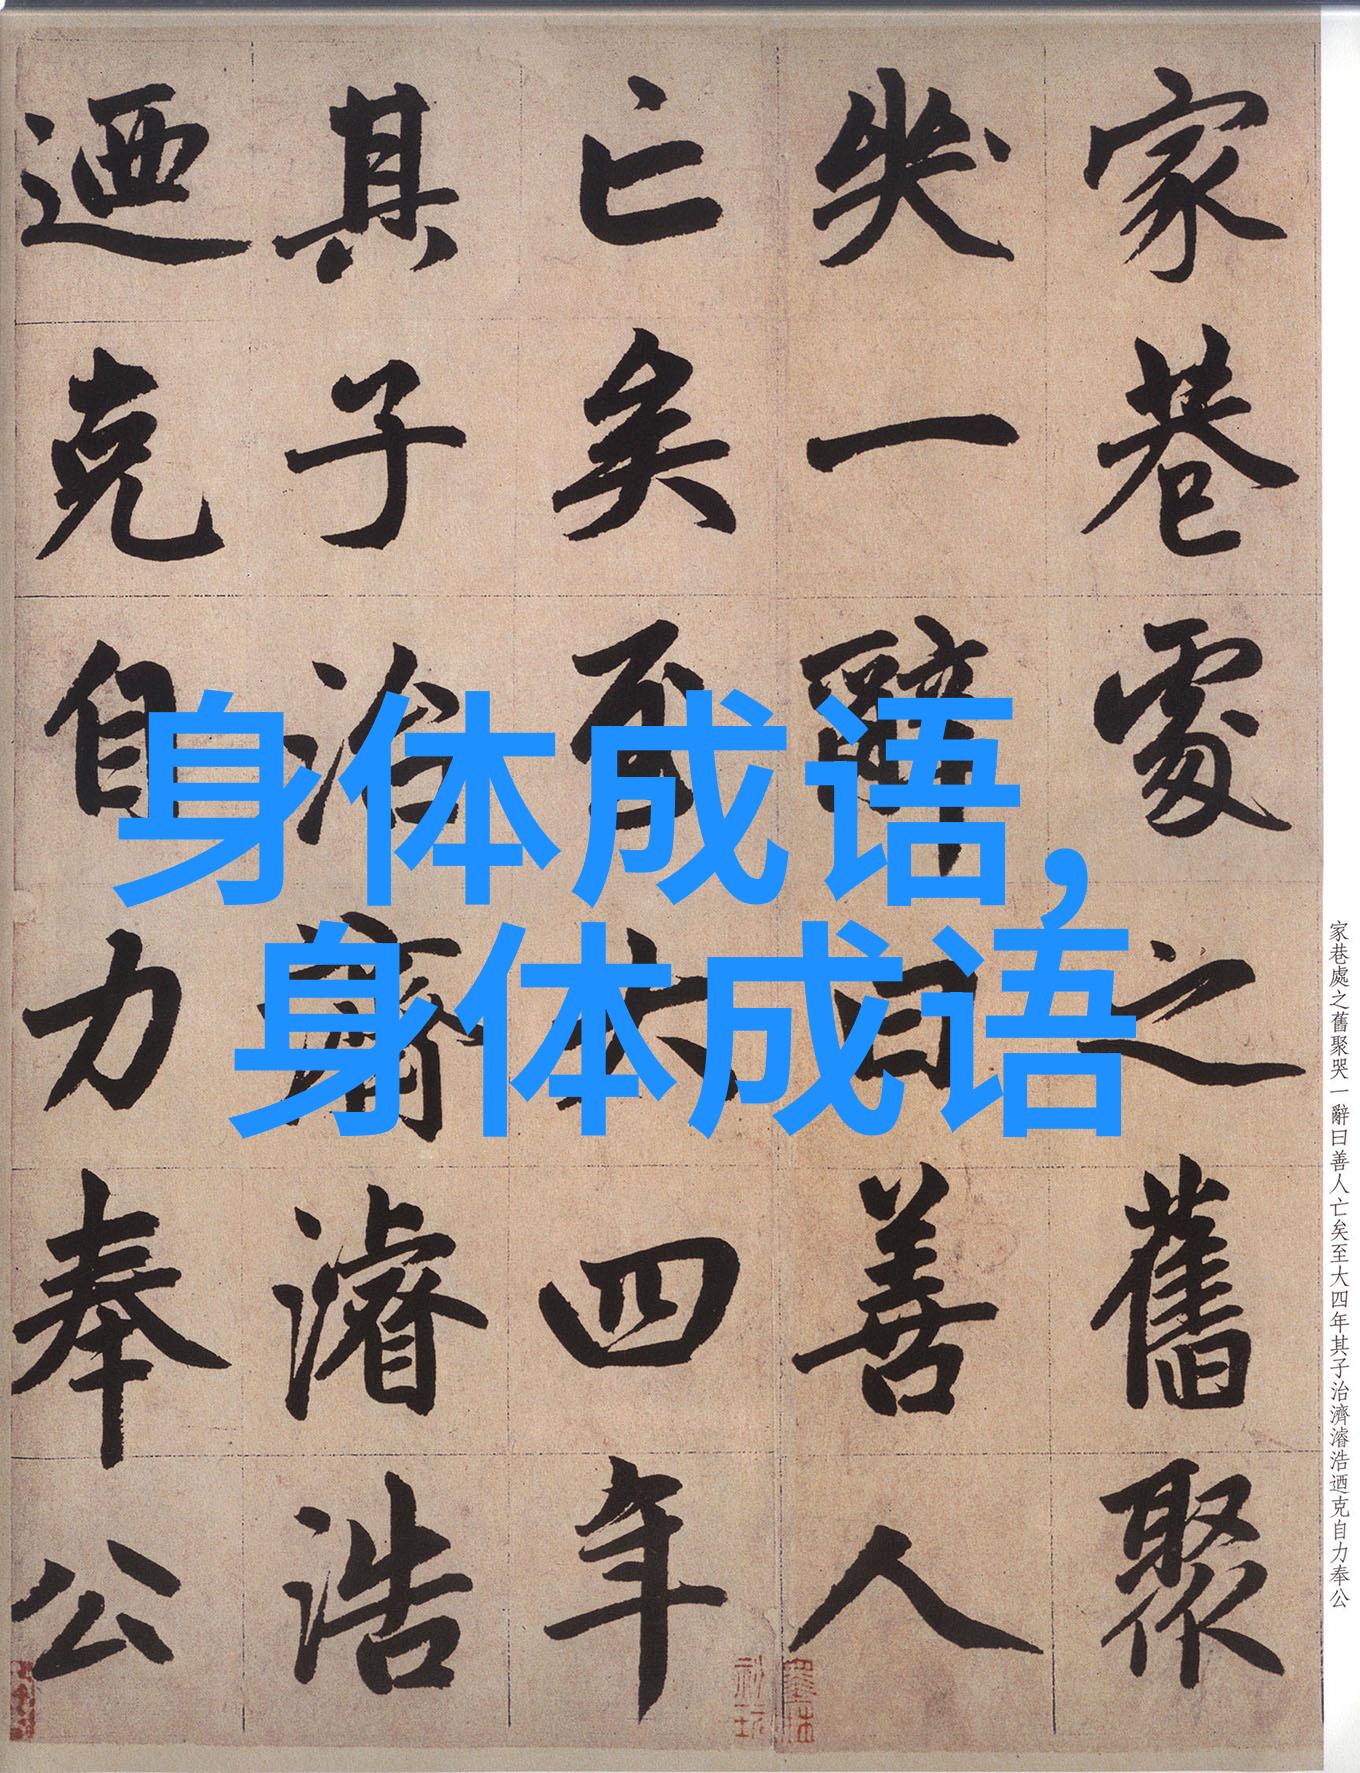 家巷處之舊聚
哭一辭曰善人
亡矣至大四年
其子治濟濬浩
迺克自力奉公
身体成语，
身体成语
家巷處之舊聚哭一辭曰善人亡矣至大四年其子治濟濬浩迺克自力奉公